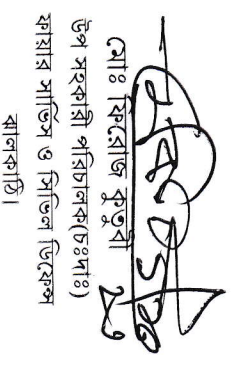 মোঃ ফিরোজ কুতুবী
উপ সহকারী পরিচালক(চঃদাঃ)
ফায়ার সার্ভিস ও সিভিল ডিফেন্স
ঝালকাঠি।